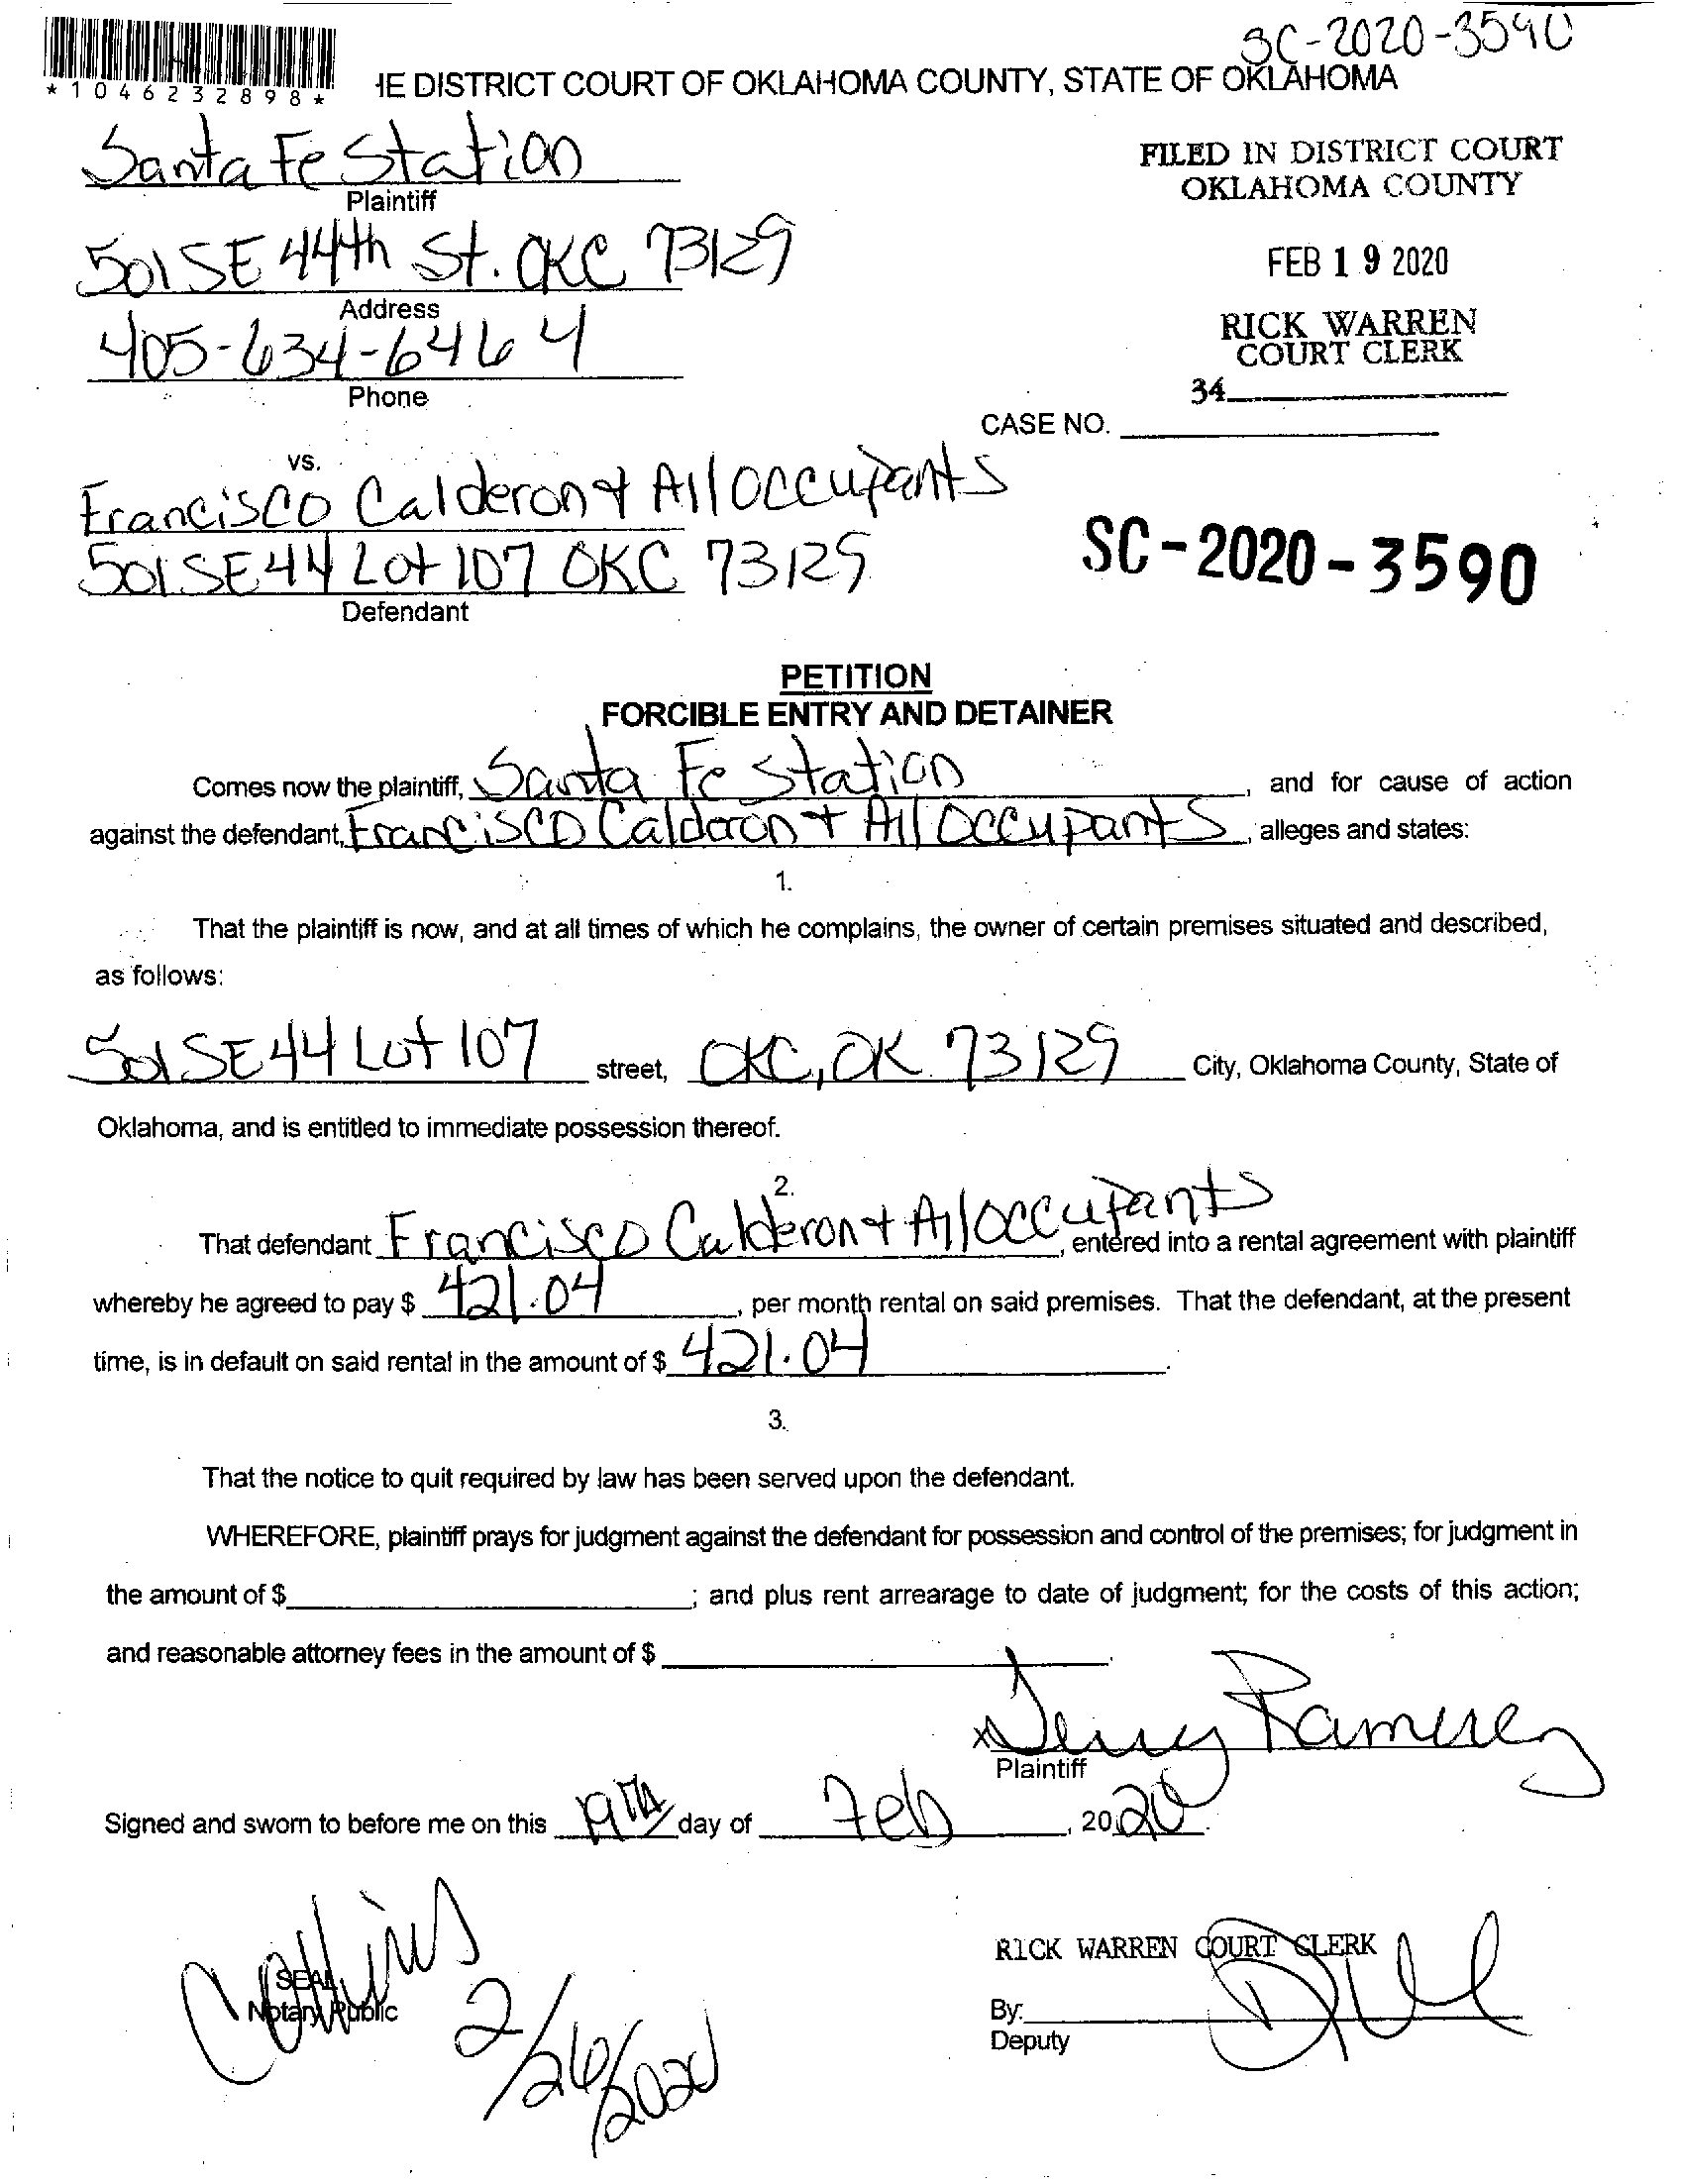 SC-2020-3590
*1046232898*
IE DISTRICT COURT OF OKLAHOMA COUNTY, STATE OF OKLAHOMA
Santa Fe Station
Plaintiff
FILED IN DISTRICT COURT
OKLAHOMA COUNTY
501 SE 44th St. OKC 73129
Address
FEB 19 2020
405-634-6464
Phone
RICK WARREN
COURT CLERK
34
CASE NO.
vs.
Francisco Calderon + All Occupants
501 SE 44 Lot 107 OKC 73129
Defendant
SC-2020-3590
PETITION
FORCIBLE ENTRY AND DETAINER
Comes now the plaintiff, Santa Fe Station, and for cause of action
against the defendant, Francisco Calderon + All Occupants, alleges and states:
1.
That the plaintiff is now, and at all times of which he complains, the owner of certain premises situated and described,
as follows:
501 SE 44 Lot 107 street, OKC, OK 73129 City, Oklahoma County, State of
Oklahoma, and is entitled to immediate possession thereof.
2.
That defendant Francisco Calderon + All Occupants, entered into a rental agreement with plaintiff
whereby he agreed to pay $ 421.04, per month rental on said premises. That the defendant, at the present
time, is in default on said rental in the amount of $ 421.04.
3.
That the notice to quit required by law has been served upon the defendant.
WHEREFORE, plaintiff prays for judgment against the defendant for possession and control of the premises; for judgment in
the amount of $ ; and plus rent arrearage to date of judgment; for the costs of this action;
and reasonable attorney fees in the amount of $ .
x Ramirez
Plaintiff
Signed and sworn to before me on this 19th day of Feb, 2020.
Collins
SEAL
Notary Public
2/26/2020
RICK WARREN COURT CLERK
By:
Deputy